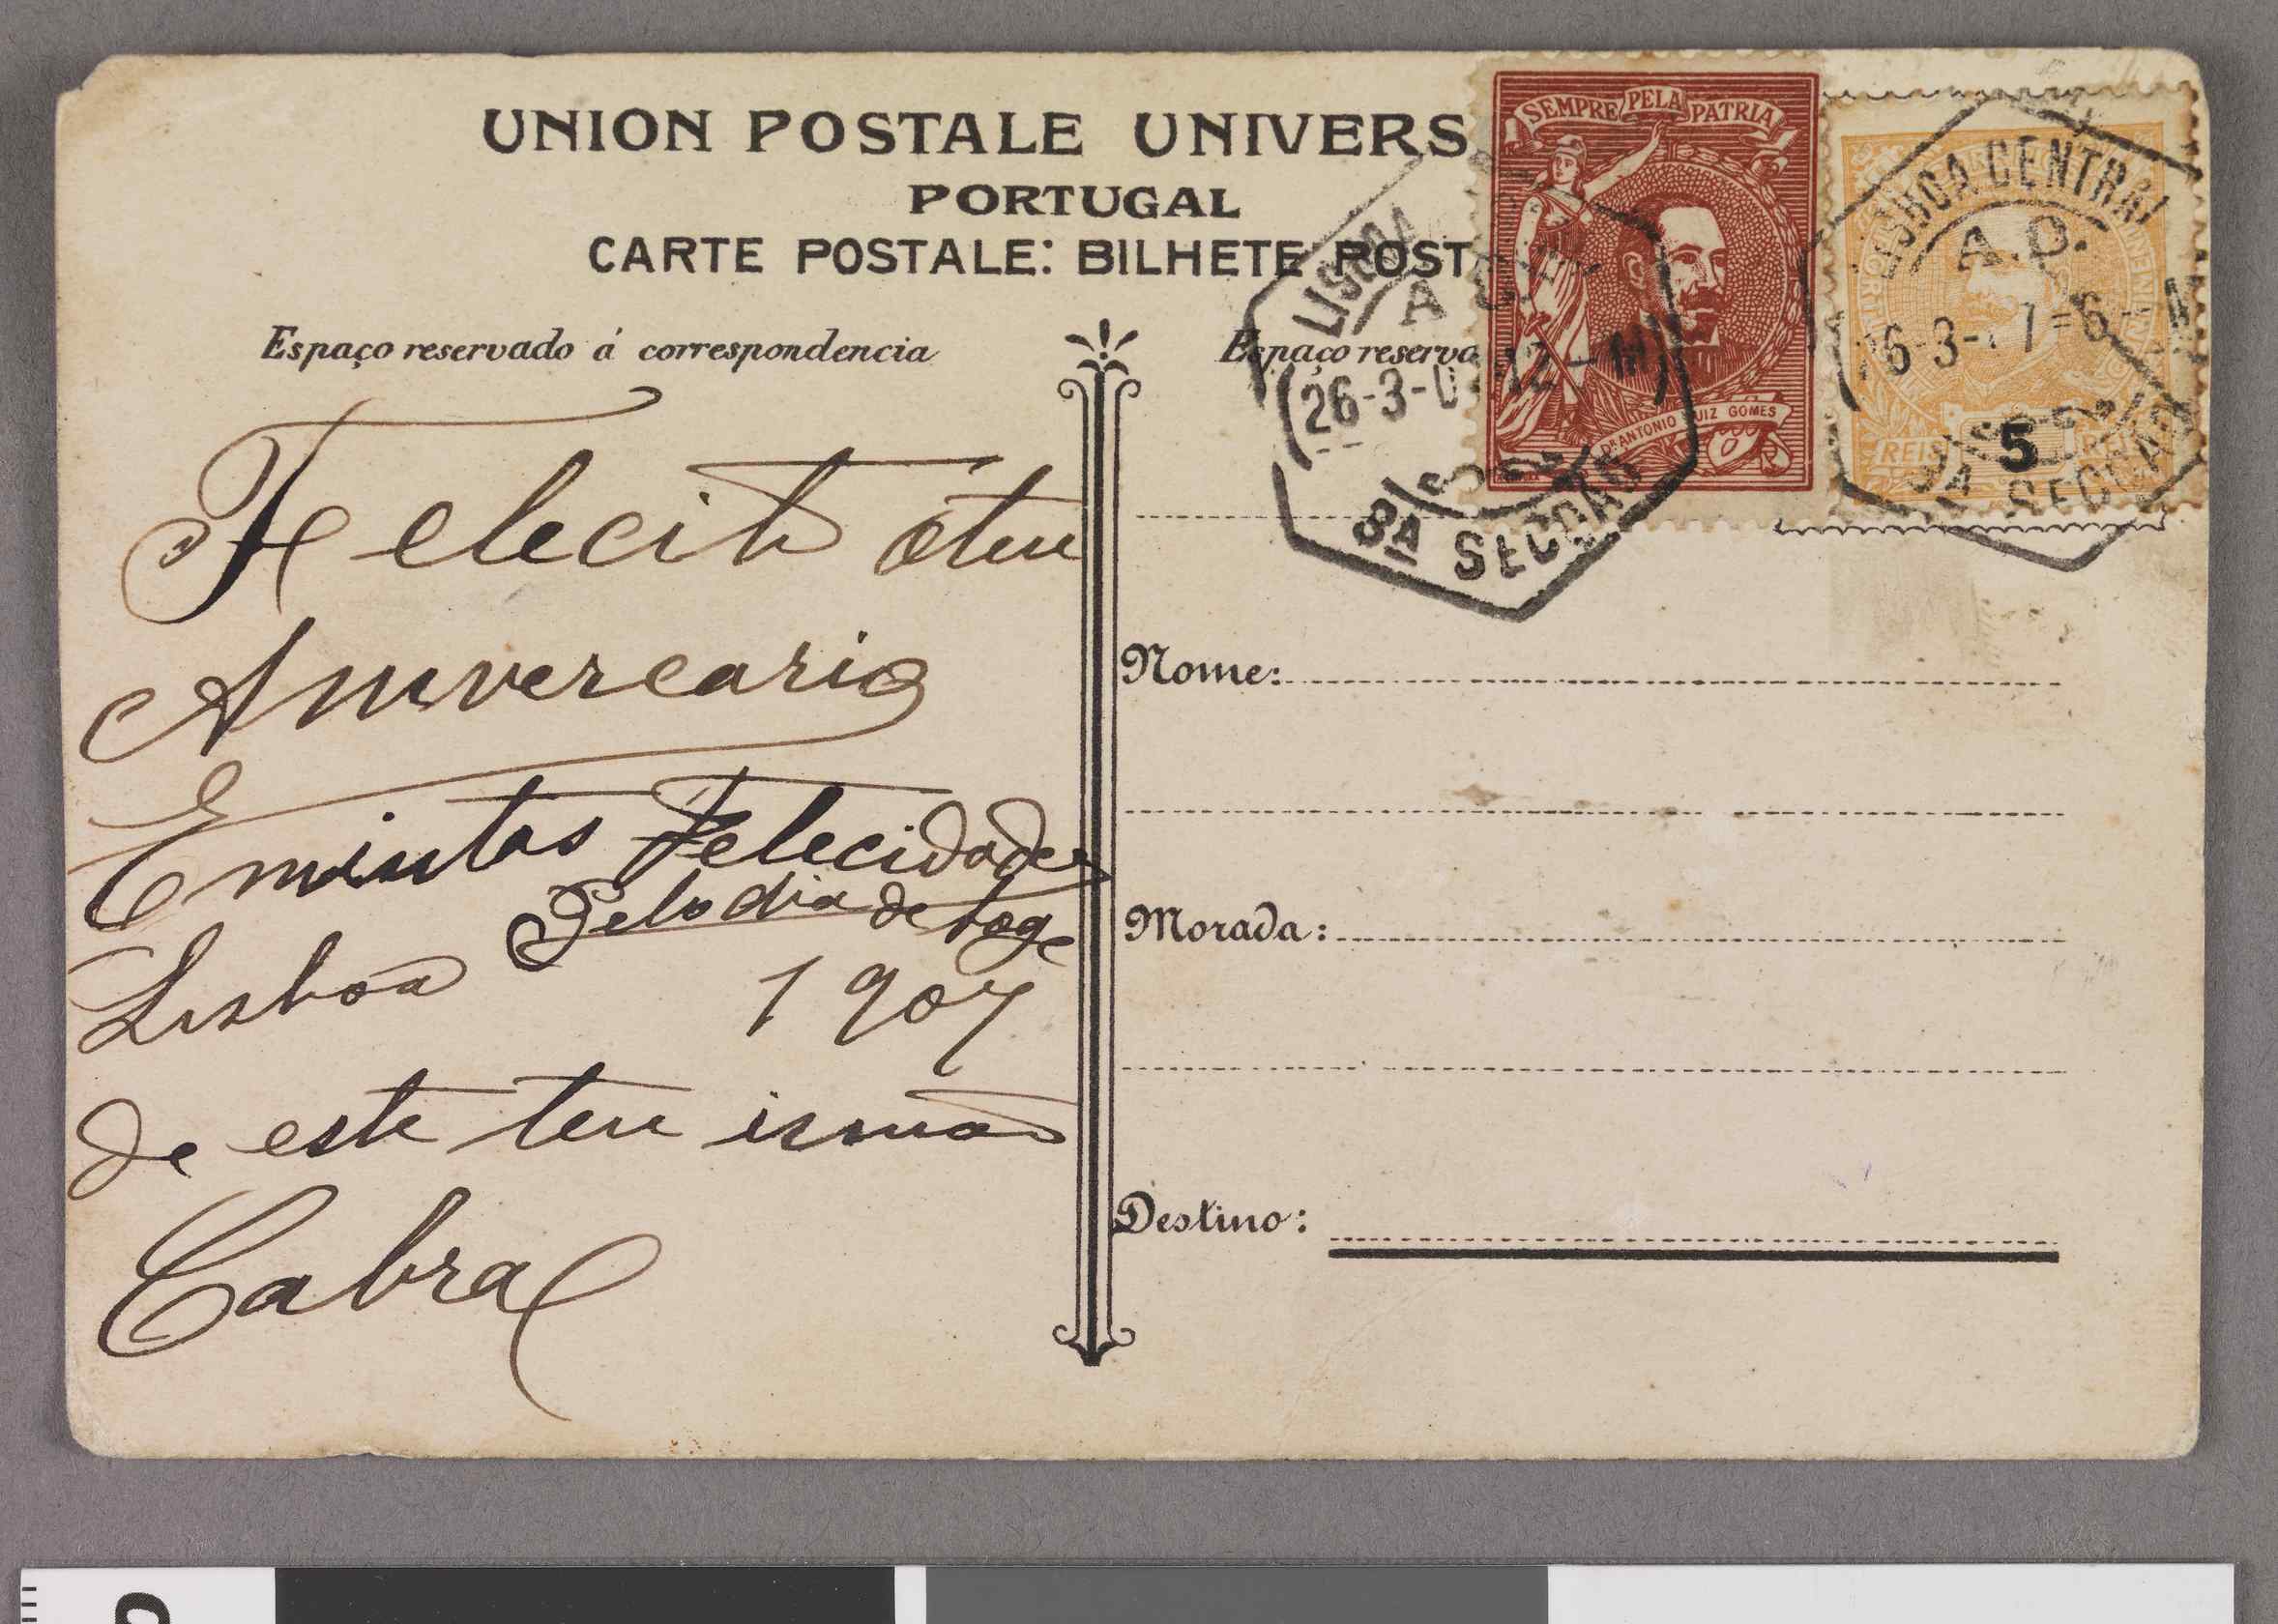 UNION POSTALE UNIVERS
PORTUGAL
CARTE POSTALE: BILHETE POST
Espaço reservado á correspondencia
Espaço reserva
SEMPRE PELA PATRIA
DR ANTONIO LUIZ GOMES
LISBOA
26-3-0 12-M
8A SECCAO
LISBOA CENTRAL
A.O.
6-3- 7=6- M
SECCAO
REIS 5 REIS
Felecito o teu
Anivercario
E muitas Felecidades
Pelo dia de hoge
Lisboa 1907
de este teu irmão
Cabral
Nome:
Morada:
Destino: